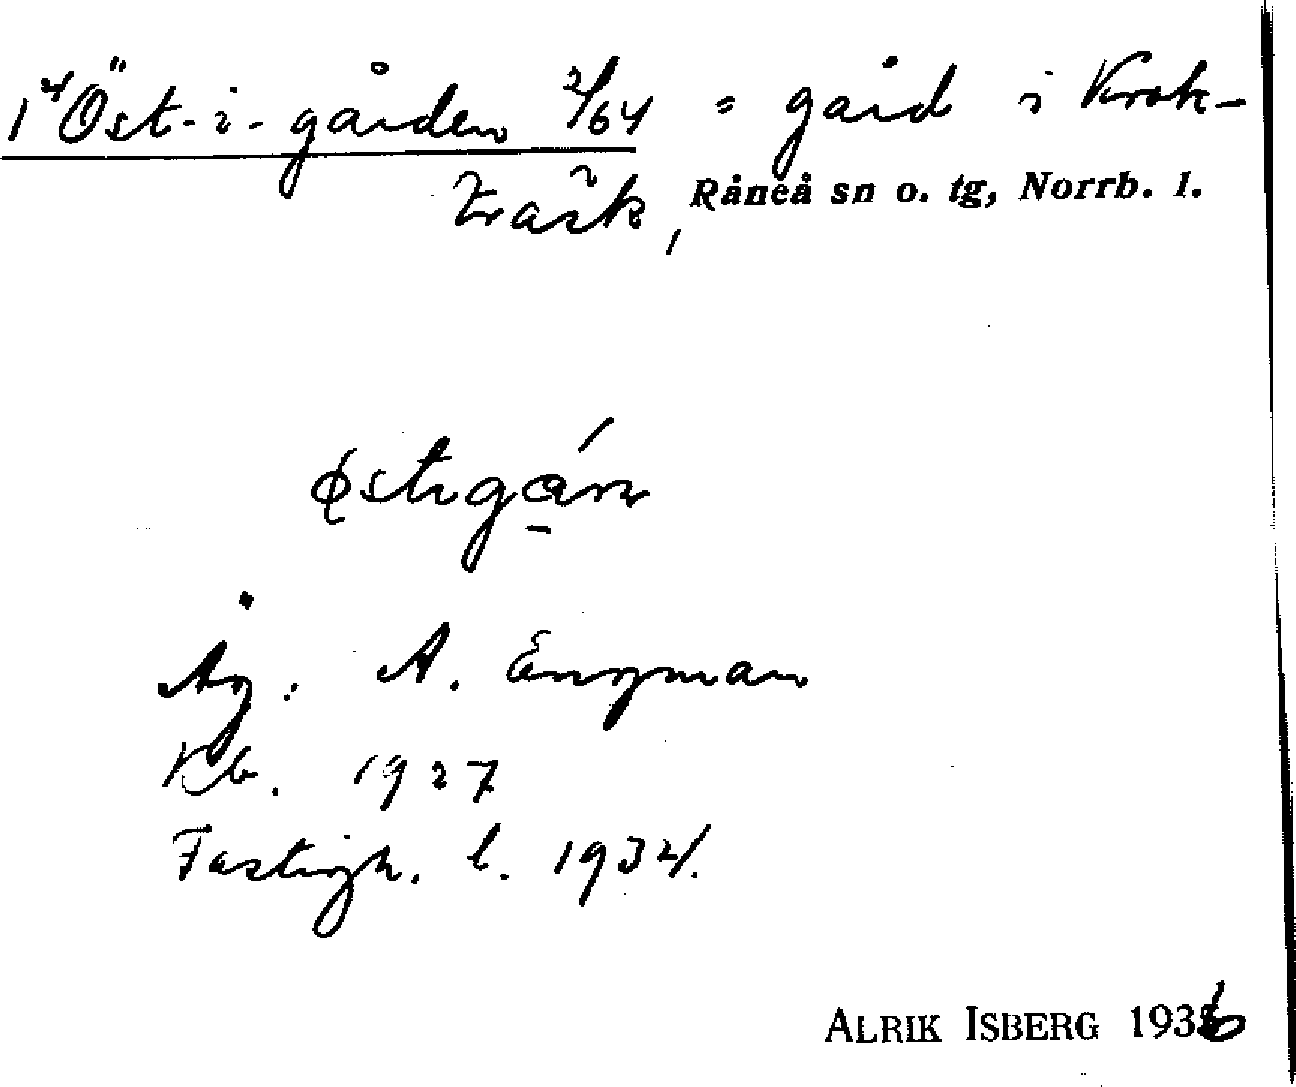 1⁴ Öst-i-gården 2/64 = gård i Krok-
träsk, Råneå sn o. tg, Norrb. l.
østigárn
Äg: A. Engman
Kb. 1927
Fastigh. l. 1934.
ALRIK ISBERG 1936